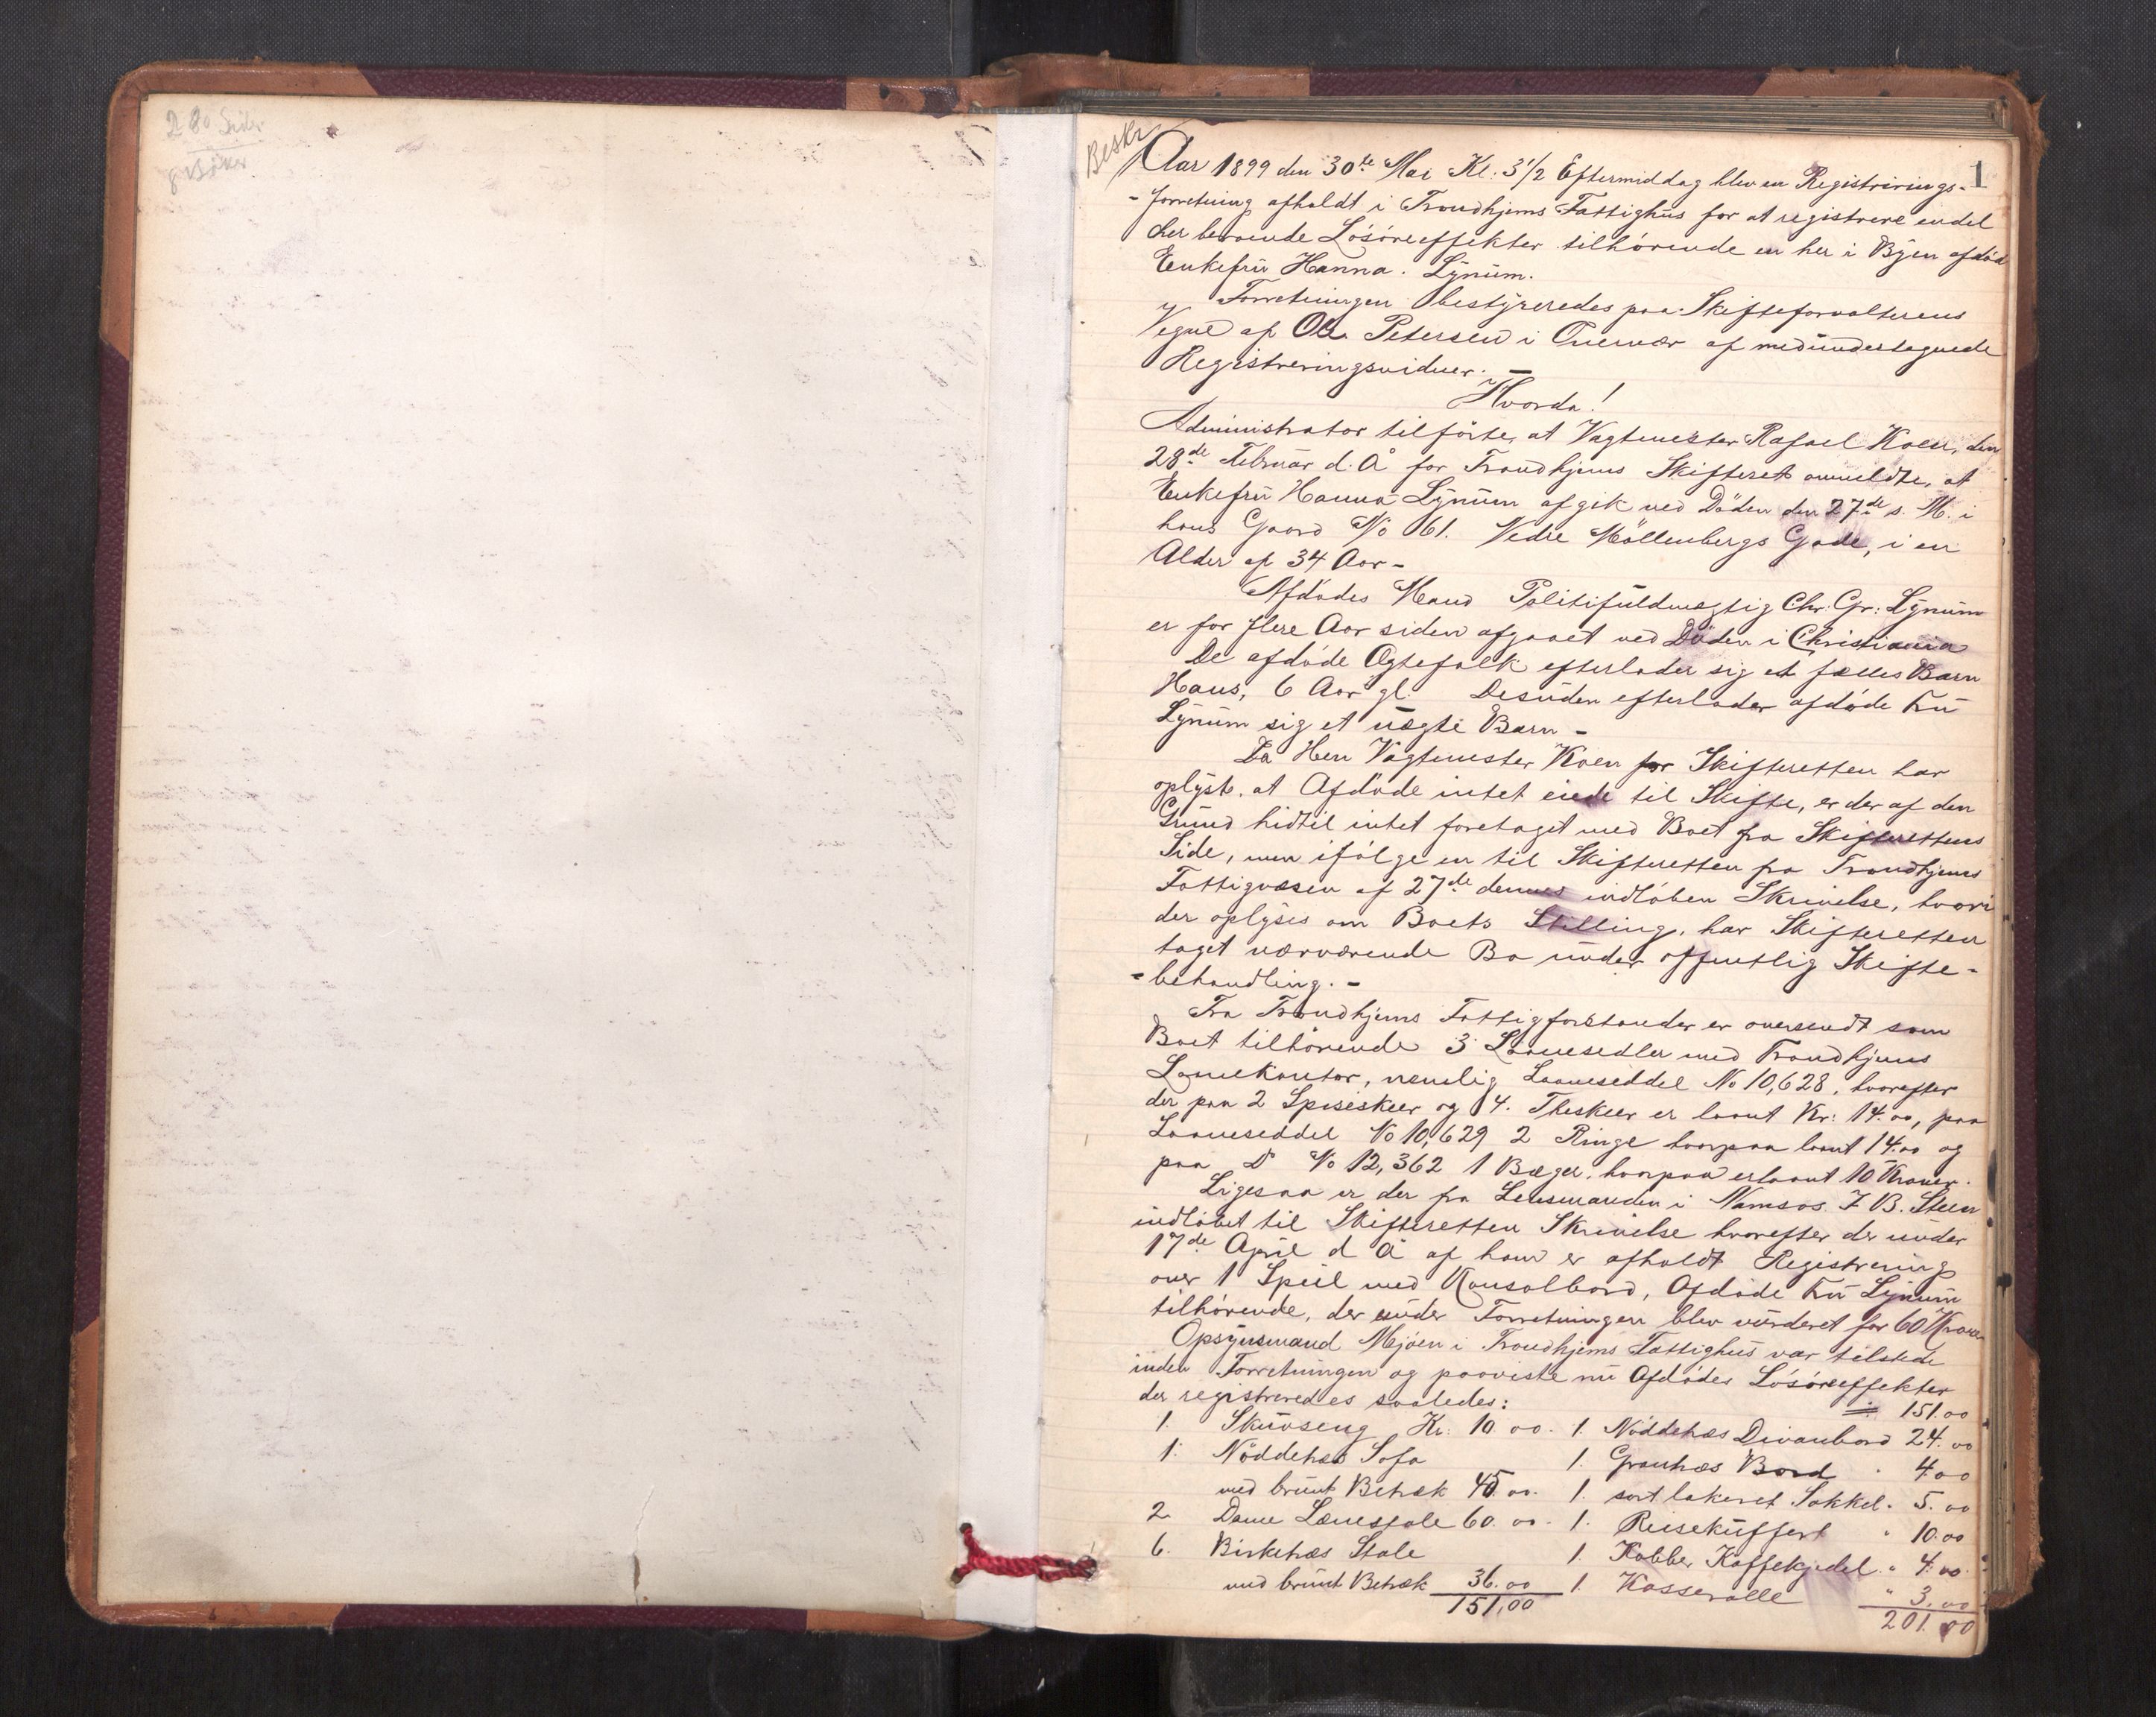 280 Sider
8 Bøker
Beskr
1
Aar 1899 den 30te Mai Kl. 3 1/2 Eftermiddag blev en Registrerings-
-forretning afholdt i Trondhjems Fattighus for at registrere endel
her beroende Løsøreeffekter tilhørende en her i Byen afdød
Enkefru Hanna Lynum.
Forretningen bestyreredes paa Skifteforvalterens
Vegne af Ole Petersen i Overvær af medundertegnede
Registreringsvidner. -
Hvorda!
Administrator tilførte, at Vagtmester Rafael Koen, den
28de Februar d. A for Trondhjems Skifteret anmeldte, at
Enkefru Hanna Lynum afgik ved Døden den 27de s. M. i
hans Gaard No 61. Nedre Møllenbergs Gade, i en
Alder af 34 Aar -
Afdødes Mand Politifuldmægtig Chr: Gr: Lynum
er for flere Aar siden afgaaet ved Døden i Christiania
De afdøde Ægtefolk efterlader sig et fælles Barn
Hans, 6 Aar gl. Desuden efterlader afdøde Fru
Lynum sig et uægte Barn -
Da Herr Vagtmester Koen for Skifteretten har
oplyst, at Afdøde intet eiede til Skifte, er der af den
Grund hidtil intet foretaget med Boet fra Skifterettens
Side, men ifølge en til Skifteretten fra Trondhjems
Fattigvæsen af 27de dennes indløben Skrivelse, hvori
der oplyses om Boets Stilling, har Skifteretten
taget nærværende Bo under offentlig Skifte-
-behandling. -
Fra Trondhjems Fattigforstander er oversendt som
Boet tilhørende 3 Laanesedler med Trondhjems
Lanekontor, nemlig Laaneseddel No 10,628, hvorefter
der paa 2 Spiseskeer og 14. Theskeer er laant Kr: 14.00, paa
Laaneseddel No 10,629 2 Ringe hvorpaa laant 14.00 og
paa Do No 12,362 1 Bæger, hvorpaa er laant 10 Kroner.
Ligesaa er der fra Lensmanden i Namsos J B. Steen
indløbet til Skifteretten Skrivelse hvorefter der under
17de April d A af ham er afholdt Registrering
over 1 Speil med Konsolbord, Afdøde Fru Lynum
tilhørende, der under Forretningen blev vurderet for 60 Kroner
Opsynsmand Mjøen i Trondhjems Fattighus var tilstede
under Forretningen og paaviste nu Afdødes Løsøreeffekter
der registreredes saaledes: 151.00
1. Skuvseng Kr. 10.00. 1. Nøddetræs Divanbord 24.00
1. Nøddetræs Sofa 1. Grantræs Bord " 4.00
med brunt Betræk 45.00. 1. sort lakeret Sokkel " 5.00
2 Dame Lænestole 60.00. 1. Reisekuffert " 10.00
6. Birketræs Stole 1. Kobber Kaffekjedel " 4.00
med brunt Betræk 36.00 1. Kasserolle " 3.00
151,00 201.00